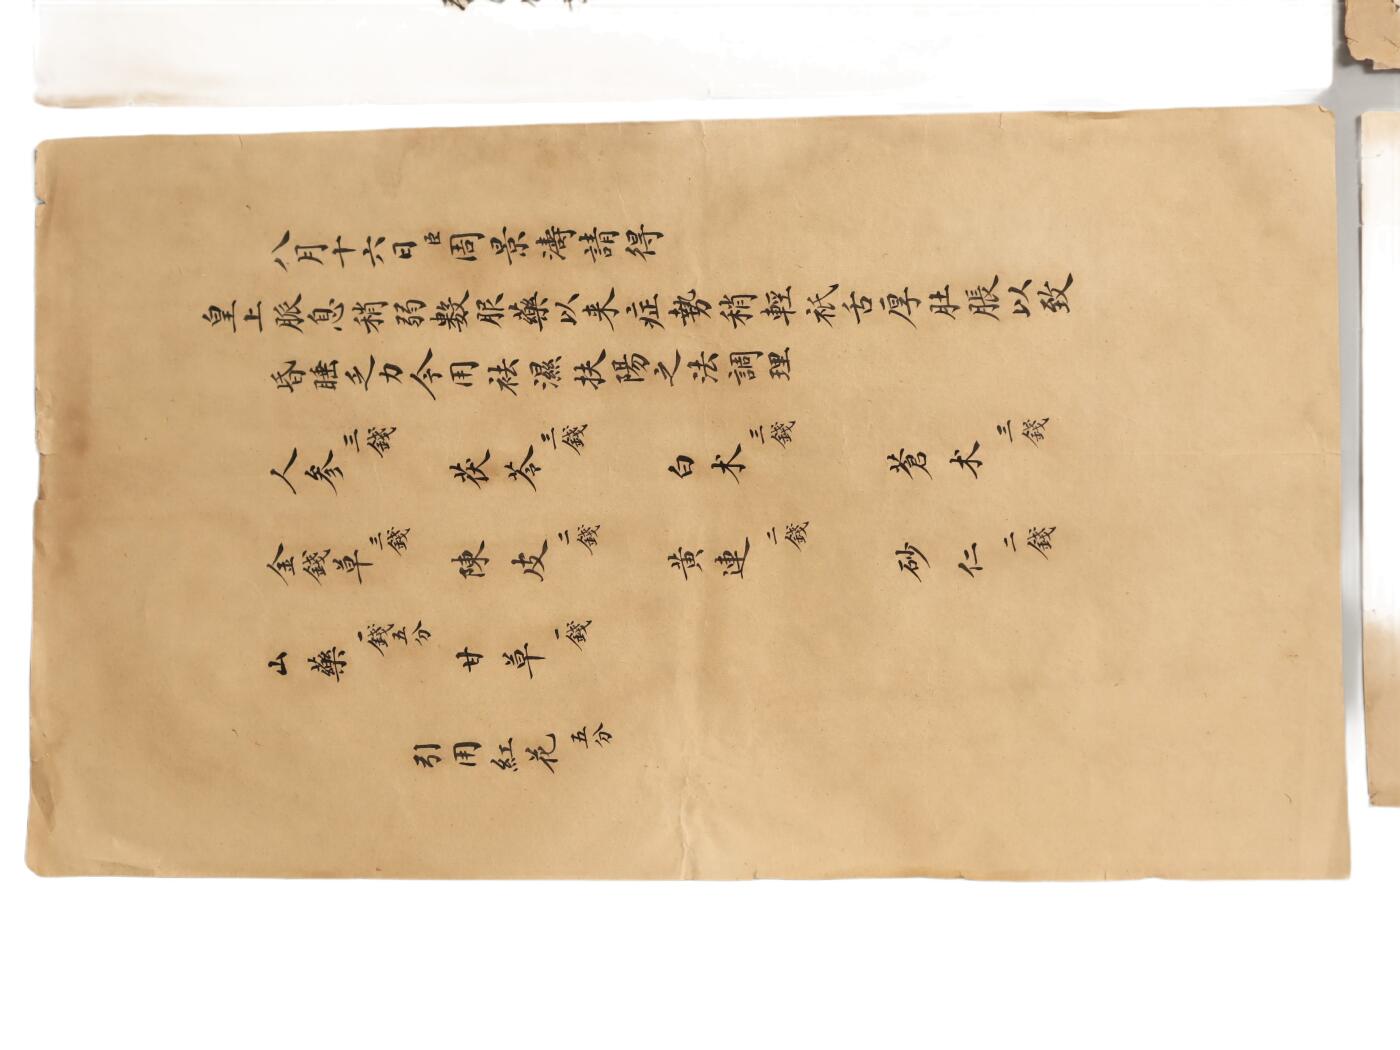 八月十六日臣周景濤請得
皇上脈息稍弱數服藥以来症勢稍輕祇舌厚肚脹以致
昏睡乏力今用祛濕扶陽之法調理
人參三錢 茯苓三錢 白术三錢 蒼术三錢
金錢草三錢 陳皮二錢 黄連二錢 砂仁二錢
山藥一錢五分 甘草一錢
引用紅花五分